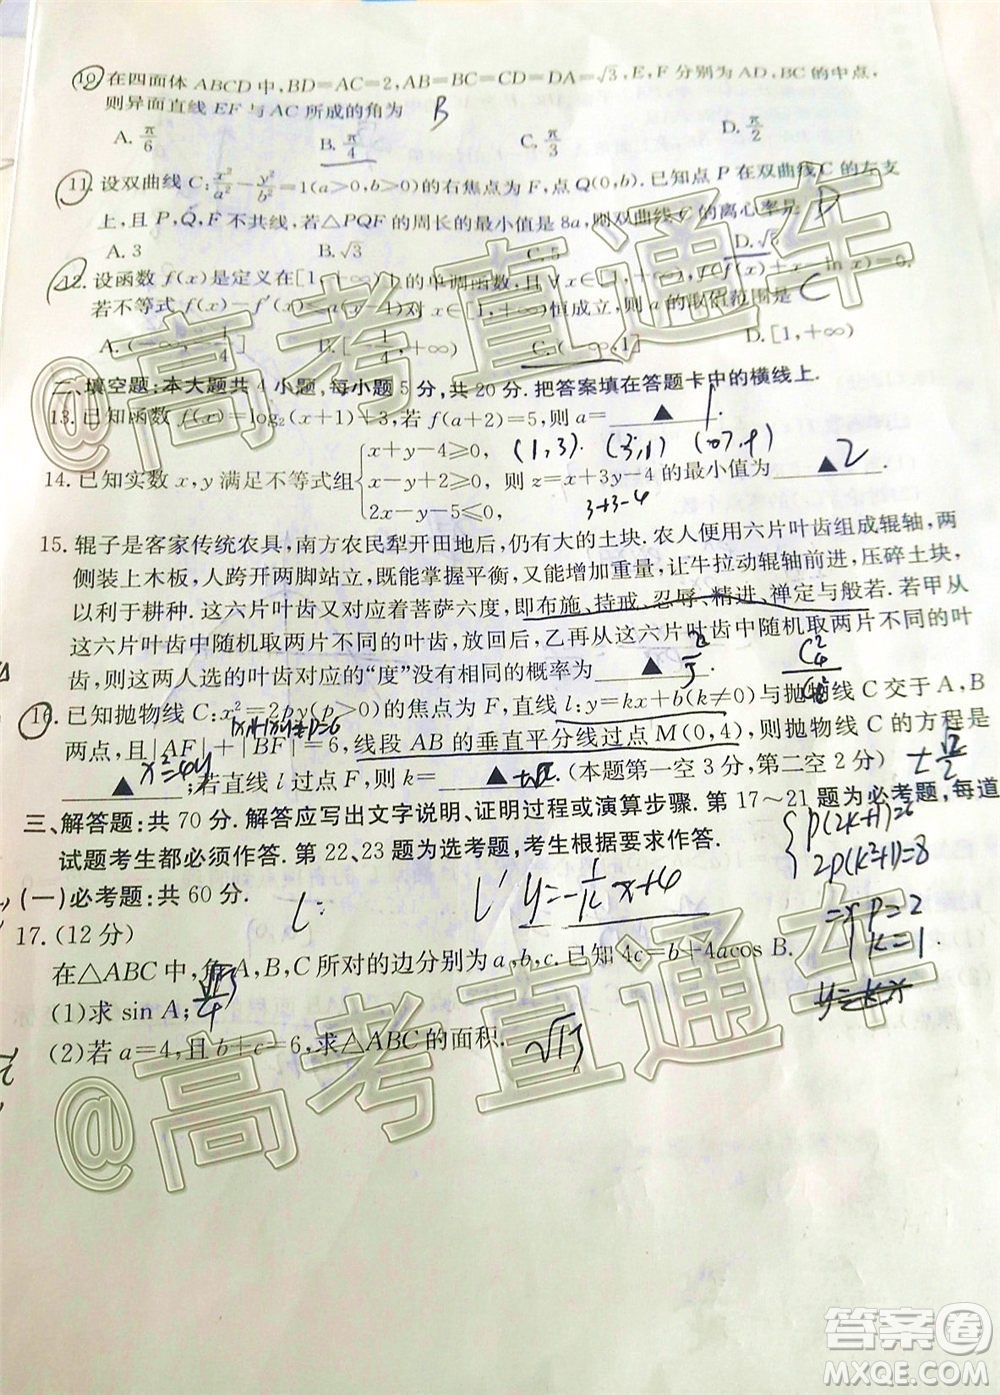 10. 在四面体 ABCD 中, BD=AC=2, AB=BC=CD=DA=√3, E, F 分别为 AD, BC 的中点,
则异面直线 EF 与 AC 所成的角为 B
A. π/6 B. π/4 C. π/3 D. π/2
11. 设双曲线 C: x²/a² - y²/b² =1(a>0, b>0) 的右焦点为 F, 点 Q(0, b). 已知点 P 在双曲线 C 的左支
上, 且 P, Q, F 不共线, 若 △PQF 的周长的最小值是 8a, 则双曲线 C 的离心率是 D
A. 3 B. √3 C. 5 D. √5
12. 设函数 f(x) 是定义在 [1, +∞) 上的单调函数, 且 ∀x∈[1, +∞), f(f(x)+x-ln x)=0.
若不等式 f(x)-f′(x)≤a(x-1) 恒成立, 则 a 的取值范围是 C
二、填空题: 本大题共 4 小题, 每小题 5 分, 共 20 分. 把答案填在答题卡中的横线上.
13. 已知函数 f(x)=log₂(x+1)+3, 若 f(a+2)=5, 则 a= ▲ 1
(1,3). (3,1)
14. 已知实数 x, y 满足不等式组 { x+y-4≥0, x-4y+2≤0, 2x-y-5≤0, 则 z=x+3y-4 的最小值为 ▲ 2
3+3-4
15. 辊子是客家传统农具, 南方农民犁开田地后, 仍有大的土块. 农人便用六片叶齿组成辊轴, 两
侧装上木板, 人跨开两脚站立, 既能掌握平衡, 又能增加重量, 让牛拉动辊轴前进, 压碎土块,
以利于耕种. 这六片叶齿又对应着菩萨六度, 即布施、持戒、忍辱、精进、禅定与般若. 若甲从
这六片叶齿中随机取两片不同的叶齿, 放回后, 乙再从这六片叶齿中随机取两片不同的叶
齿, 则这两人选的叶齿对应的“度”没有相同的概率为 ▲ 2/5
16. 已知抛物线 C: x²=2py(p>0) 的焦点为 F, 直线 l: y=kx+b(k≠0) 与抛物线 C 交于 A, B
两点, 且 |AF|+|BF|=6, 线段 AB 的垂直平分线过点 M(0, 4), 则抛物线 C 的方程是
▲ x²=4y; 若直线 l 过点 F, 则 k= ▲ . (本题第一空 3 分, 第二空 2 分)
三、解答题: 共 70 分. 解答应写出文字说明、证明过程或演算步骤. 第 17～21 题为必考题, 每道
试题考生都必须作答. 第 22、23 题为选考题, 考生根据要求作答.
2p(k²+1)=8
(一)必考题: 共 60 分.
l: l′ y=-1/k x+4
p=2
k=1
17. (12 分)
在 △ABC 中, 角 A, B, C 所对的边分别为 a, b, c. 已知 4c=b+4acos B.
(1)求 sin A;
(2)若 a=4, 且 b+c=6, 求 △ABC 的面积.
@高考直通车
@高考直通车
答案圈
MXQE.COM